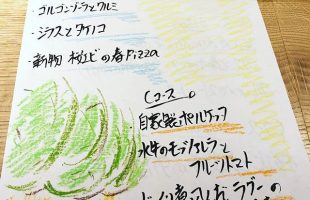 ・ゴルゴンゾーラとクルミ
・シラスとタケノコ
・新物 桜エビの春Pizza
Cコース。
自家製
水牛のモッツァレラと
フルーツトマト
ラグーの